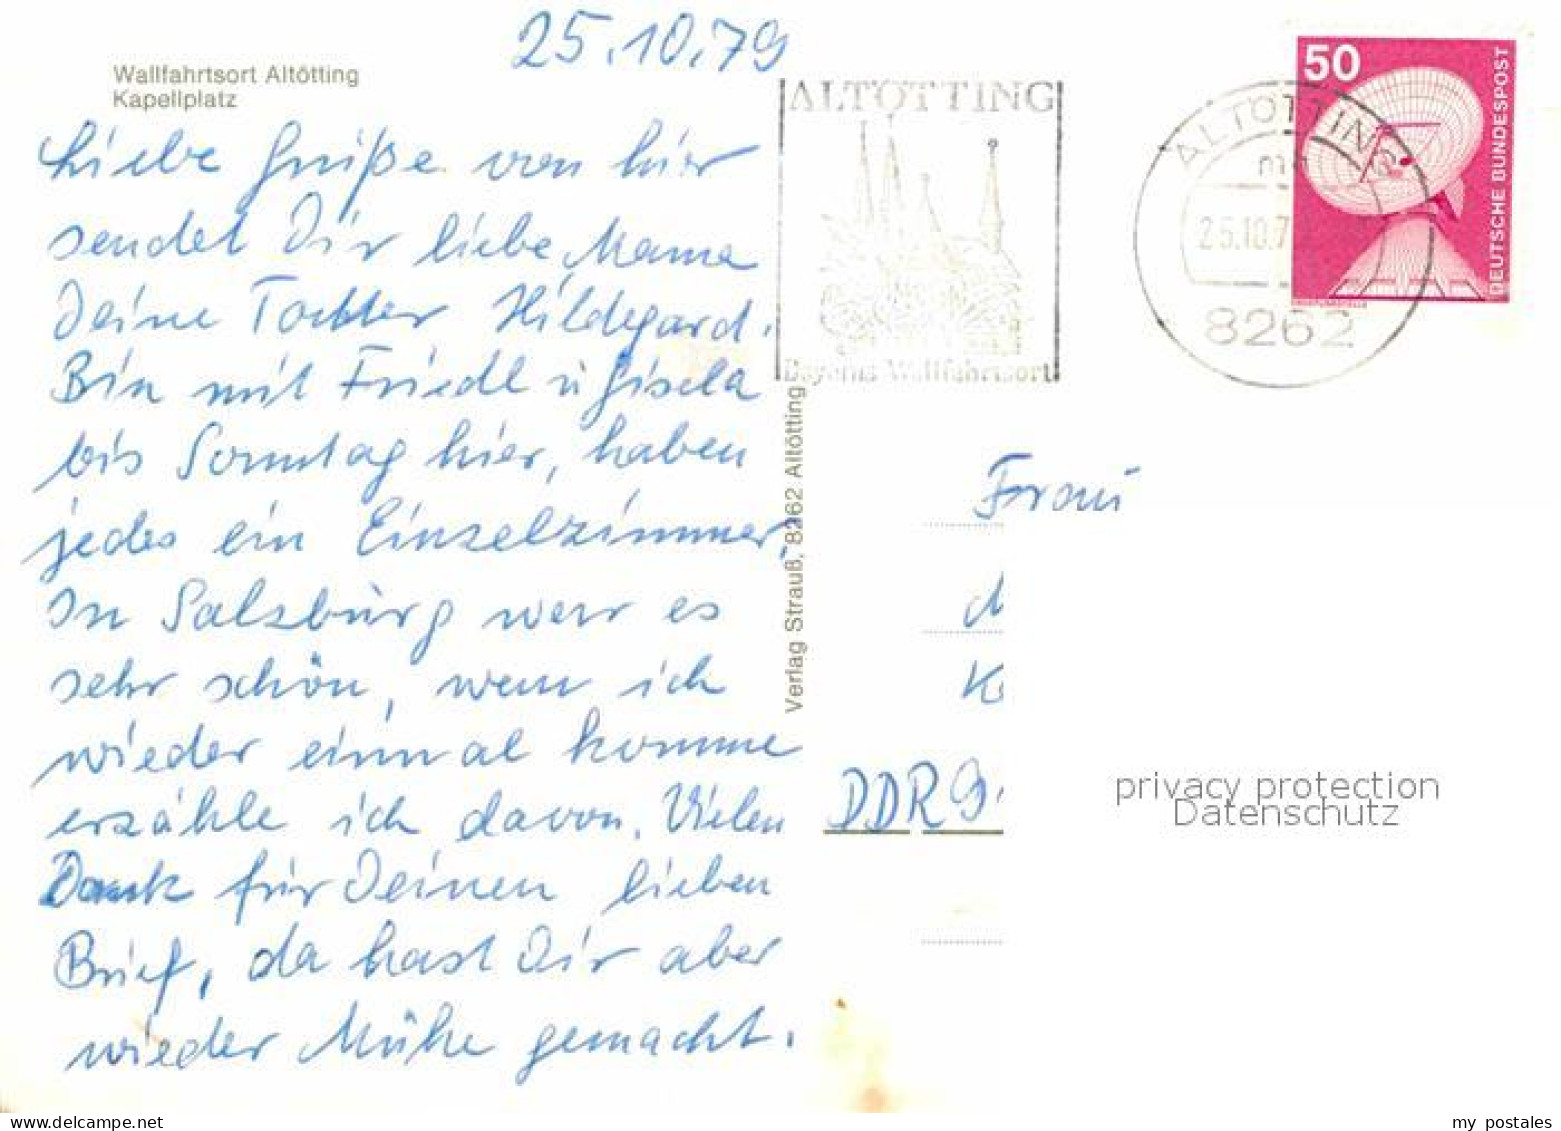 25.10.79
Wallfahrtsort Altötting
Kapellplatz
Liebe Grüße von hier
sendet Dir liebe Mama
Deine Tochter Hildegard.
Bin mit Friedl u Gisela
bis Sonntag hier, haben
jedes ein Einzelzimmer,
In Salzburg war es
sehr schön, wenn ich
wieder einmal komme
erzähle ich davon. Vielen
Dank für Deinen lieben
Brief, da hast Dir aber
wieder Mühe gemacht.
Verlag Strauß, 8262 Altötting
ALTÖTTING
Bayerns Wallfahrtsort
ALTÖTTING
25.10.7
8262
50
DEUTSCHE BUNDESPOST
Frau
DDR 9
privacy protection
Datenschutz
my postales